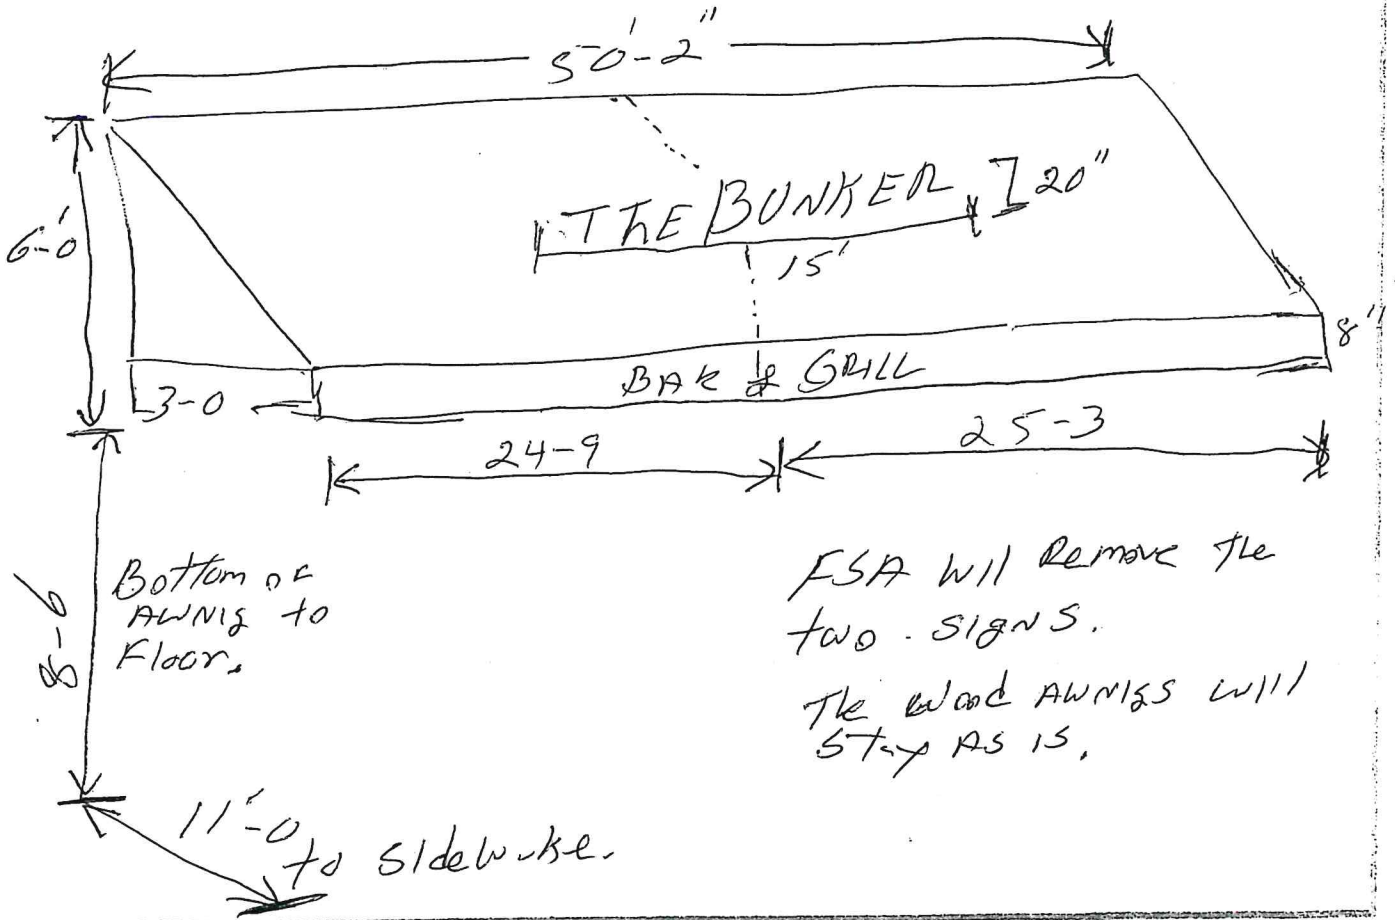 50'-2"
6'-0
THE BUNKER
20"
15'
8"
BAR & GRILL
3-0
24-9
25-3
8-6
Bottom of
AWNIG to
Floor.
FSA will Remove The
two signs.
The wood AWNIGS will
Stay AS IS.
11'-0
to sidewake.